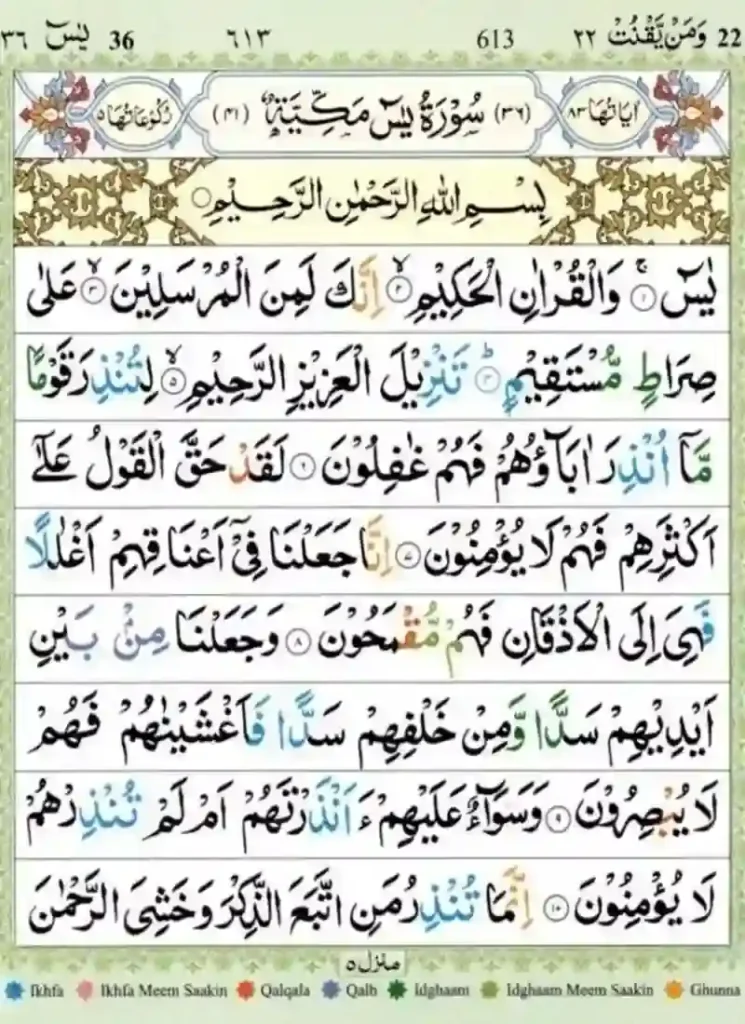 22 وَمَنْ يَّقْنُتْ ٢٢ 613 ٦١٣ 36 يٰسٓ ٣٦
اٰيَاتُهَا ٨٣ (٣٦) سُوْرَةُ يٰسٓ مَكِّيَّةٌ (٤١) رُكُوْعَاتُهَا ٥
بِسْمِ اللّٰهِ الرَّحْمٰنِ الرَّحِيْمِ
يٰسٓ ۚ ١ وَالْقُرْاٰنِ الْحَكِيْمِ ۙ ٢ اِنَّكَ لَمِنَ الْمُرْسَلِيْنَ ۙ ٣ عَلٰى
صِرَاطٍ مُّسْتَقِيْمٍ ؕ ٤ تَنْزِيْلَ الْعَزِيْزِ الرَّحِيْمِ ۙ ٥ لِتُنْذِرَ قَوْمًا
مَّاۤ اُنْذِرَ اٰبَآؤُهُمْ فَهُمْ غٰفِلُوْنَ ٦ لَقَدْ حَقَّ الْقَوْلُ عَلٰٓى
اَكْثَرِهِمْ فَهُمْ لَا يُؤْمِنُوْنَ ٧ اِنَّا جَعَلْنَا فِيْۤ اَعْنَاقِهِمْ اَغْلٰلًا
فَهِىَ اِلَى الْاَذْقَانِ فَهُمْ مُّقْمَحُوْنَ ٨ وَجَعَلْنَا مِنْۢ بَيْنِ
اَيْدِيْهِمْ سَدًّا وَّمِنْ خَلْفِهِمْ سَدًّا فَاَغْشَيْنٰهُمْ فَهُمْ
لَا يُبْصِرُوْنَ ٩ وَسَوَآءٌ عَلَيْهِمْ ءَاَنْذَرْتَهُمْ اَمْ لَمْ تُنْذِرْهُمْ
لَا يُؤْمِنُوْنَ ١٠ اِنَّمَا تُنْذِرُ مَنِ اتَّبَعَ الذِّكْرَ وَخَشِىَ الرَّحْمٰنَ
منزل ٥
Ikhfa Ikhfa Meem Saakin Qalqala Qalb Idghaam Idghaam Meem Saakin Ghunna